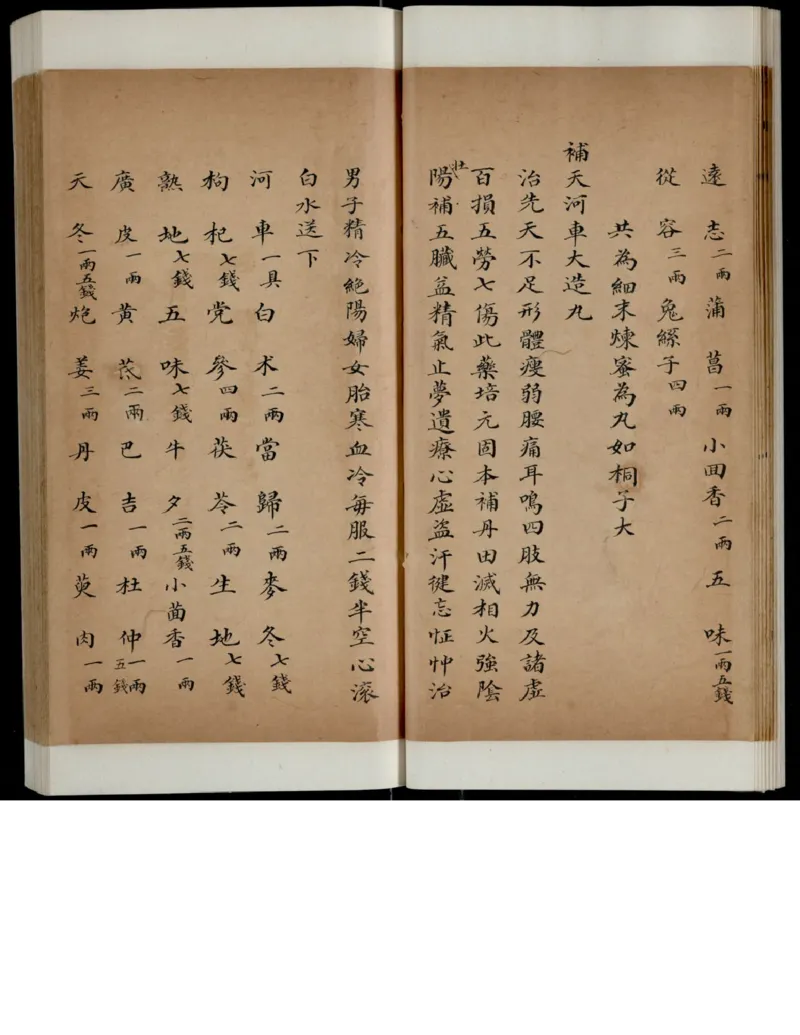 遠志二兩蒲菖一兩小囬香二兩五味一兩五錢
從容三兩兔絲子四兩
共為細末煉蜜為丸如桐子大
補天河車大造丸
治先天不足形體瘦弱腰痛耳鳴四肢無力及諸虛
百損五勞七傷此藥培元固本補丹田滅相火強陰
壯陽補五臟益精氣止夢遺療心虛盜汗健忘怔忡治
男子精冷絕陽婦女胎寒血冷每服二錢半空心滾
白水送下
河車一具白朮二兩當歸二兩麥冬七錢
枸杞七錢党參四兩茯苓二兩生地七錢
熟地七錢五味七錢牛夕二兩五錢小茴香一兩
廣皮一兩黃芪二兩巴吉一兩杜仲一兩五錢
天冬一兩五錢炮姜三兩丹皮一兩萸肉一兩